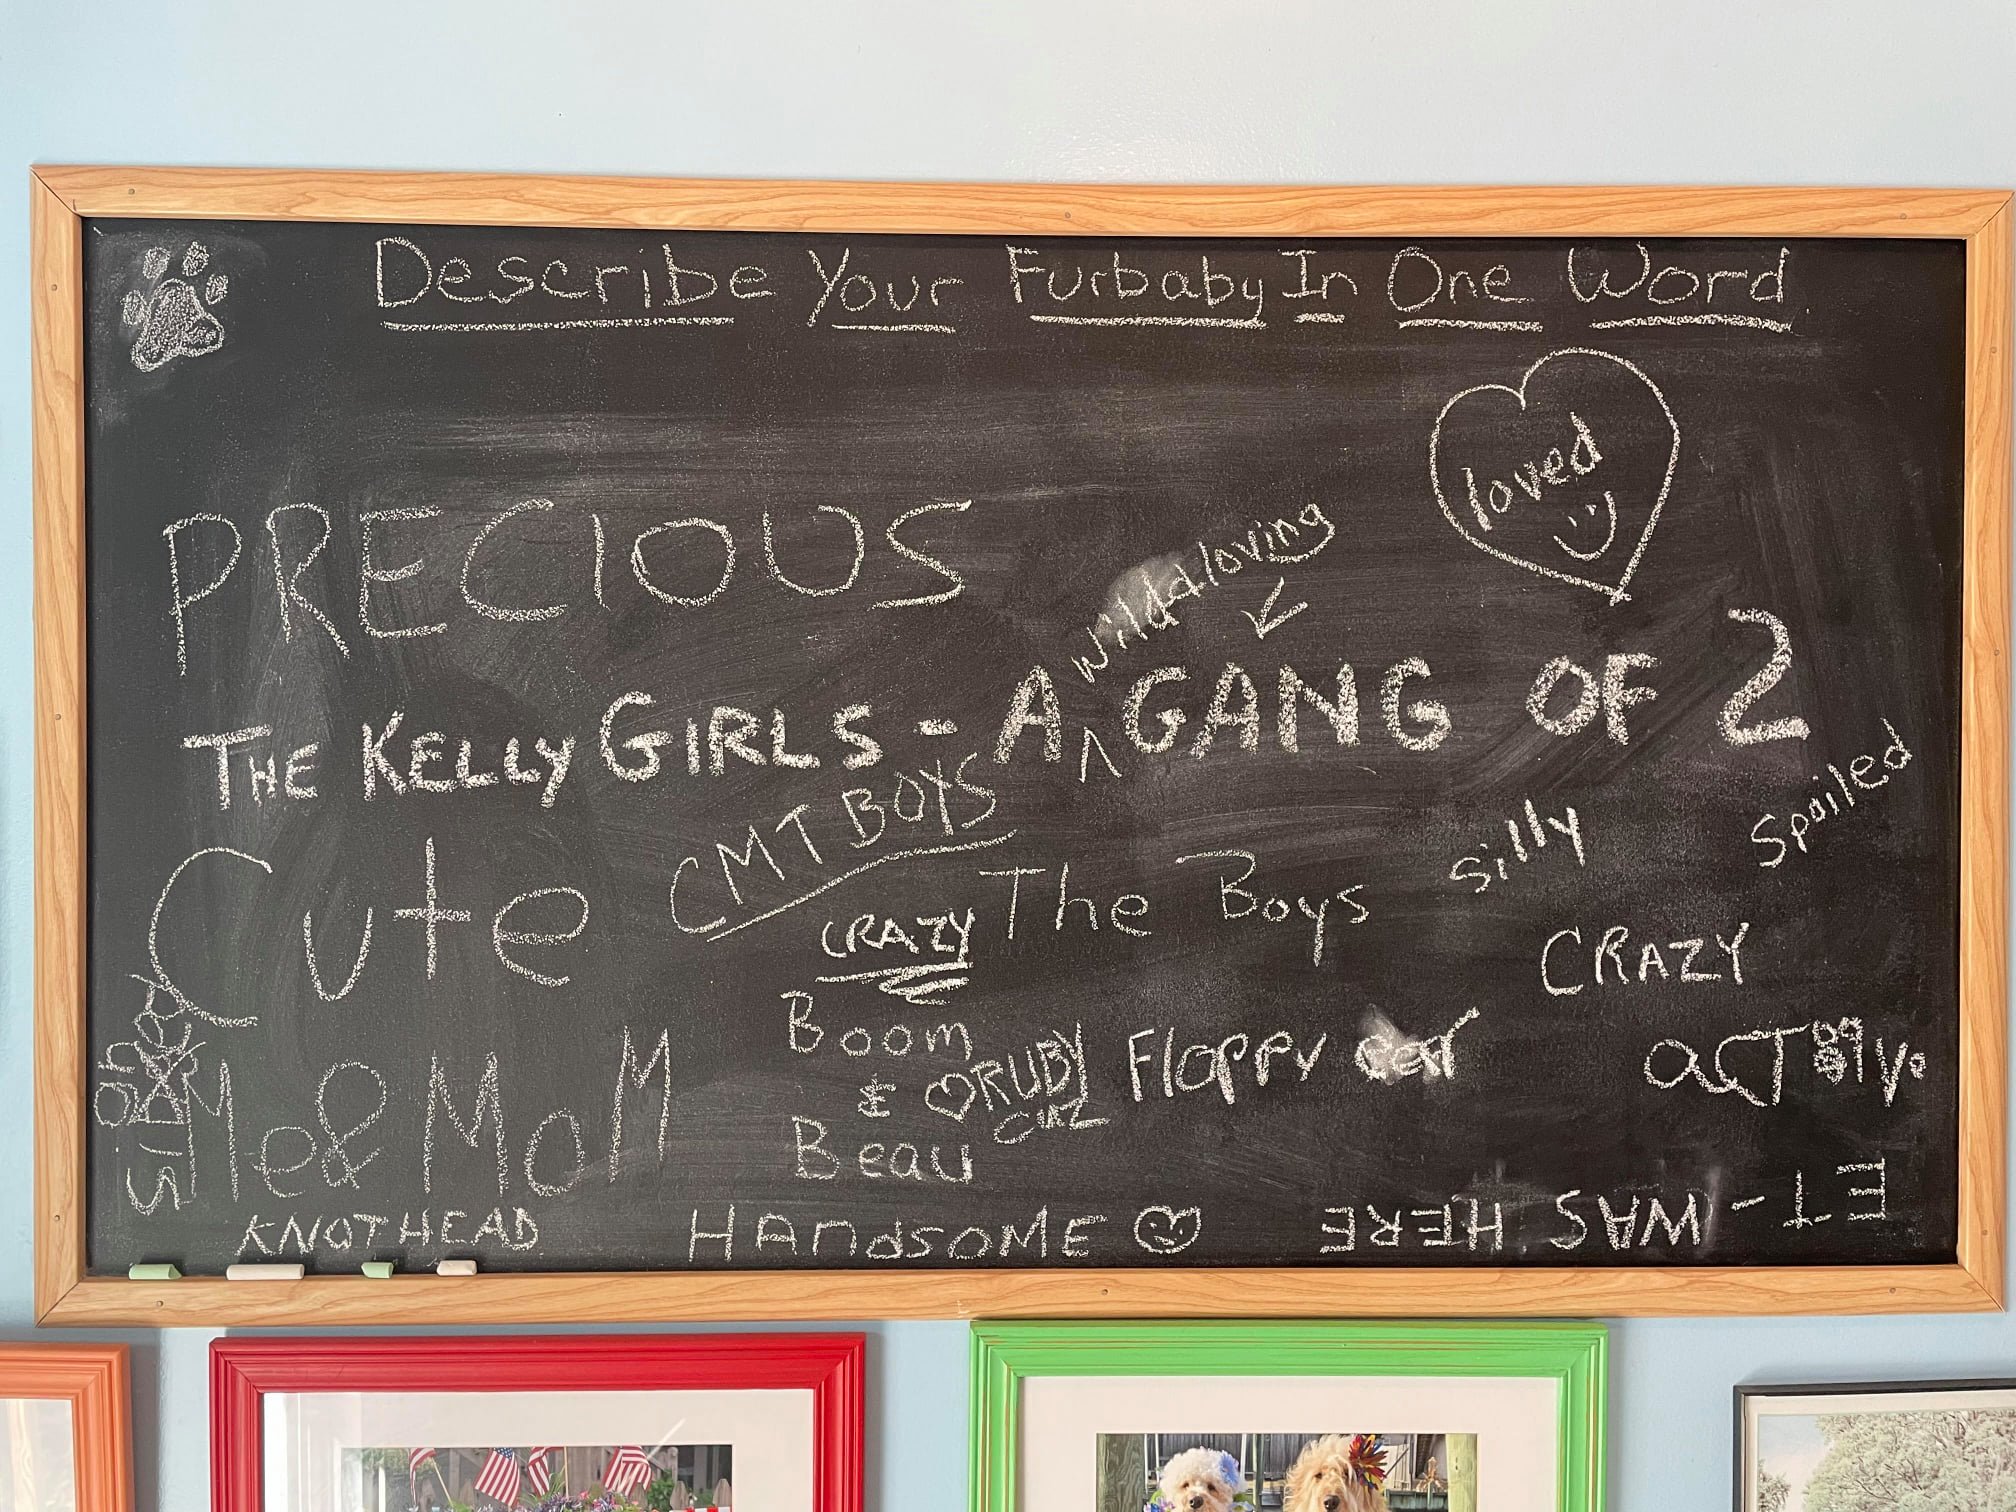 Describe Your Furbaby In One Word
loved
PRECIOUS
Wild & loving
THE KELLY GIRLS - A ^ GANG OF 2
CMT BOYS
Silly
Spoiled
Cute
The Boys
CRAZY
CRAZY
Boom
&
Beau
RUBY
Floppy
Me & MoM
KNOTHEAD
HANdSOME
ET - WAS HERE